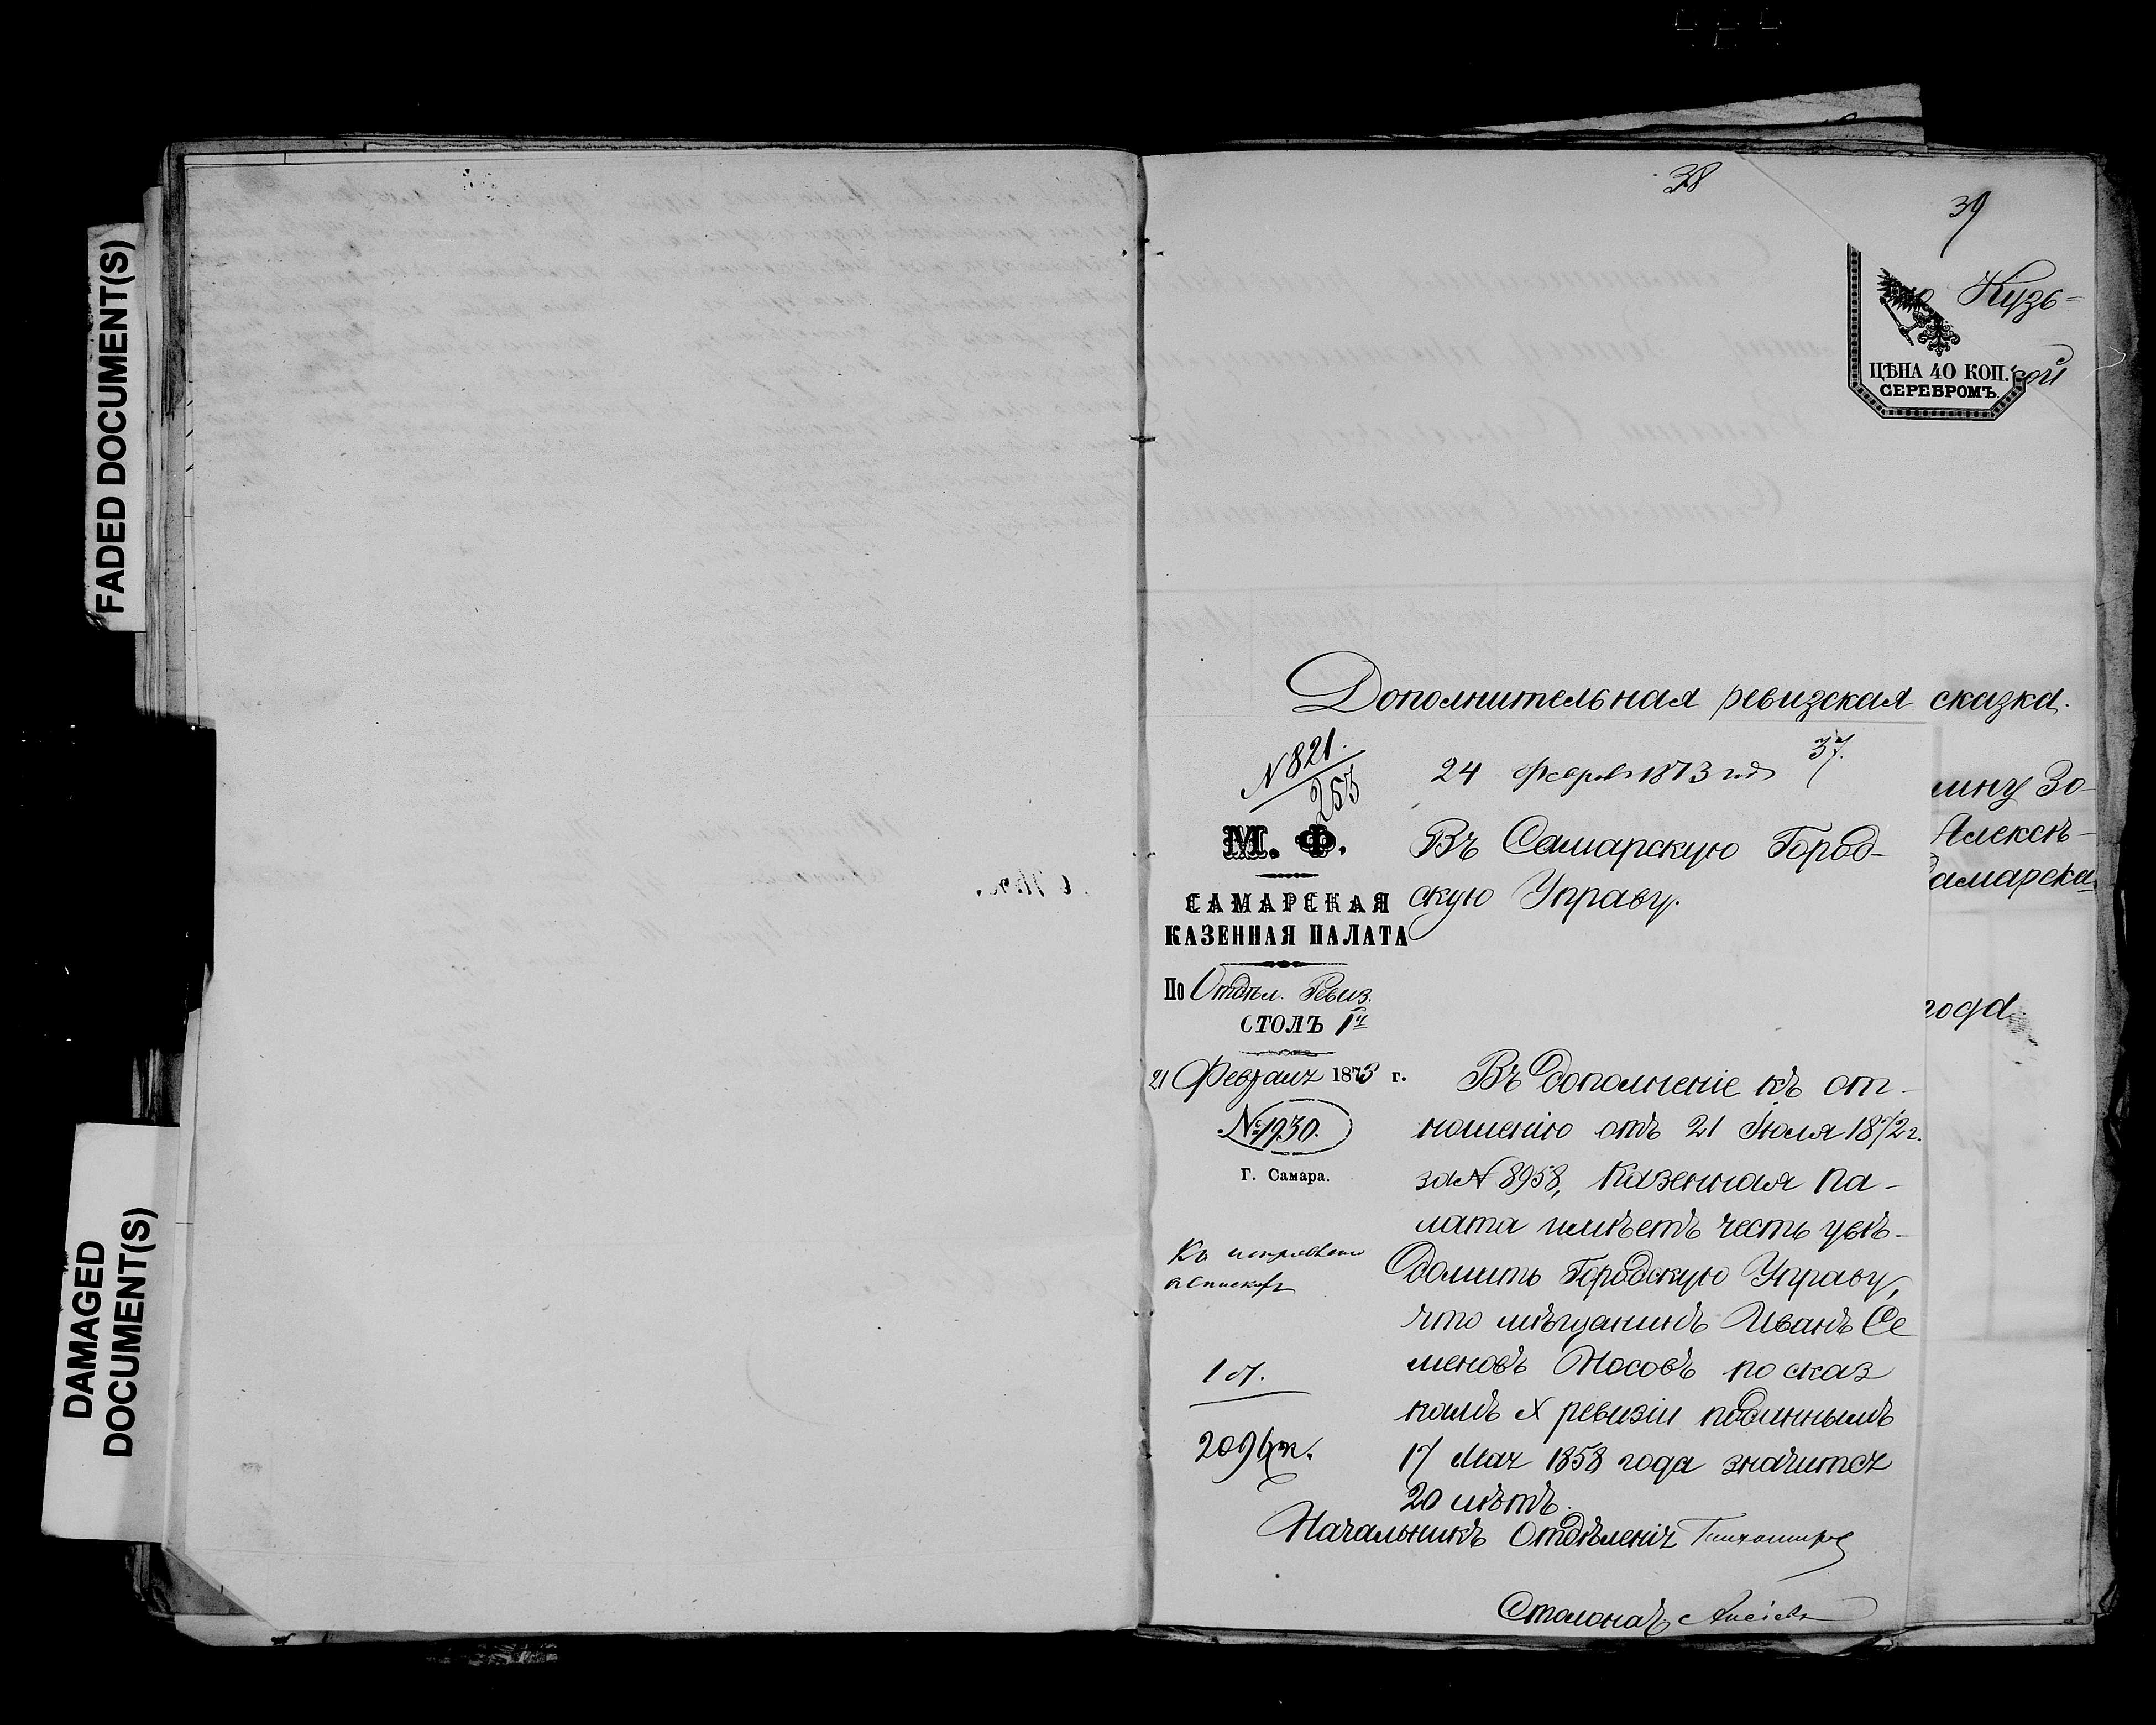 FADED DOCUMENT(S)
DAMAGED
DOCUMENT(S)
38
39
Кузь=
ЦѢНА 40 КОП.
СЕРЕБРОМЪ.
кой
Дополнительная ревизская сказка.
№ 821.
253
24 Февраля 1873 года
37.
М. Ф.
САМАРСКАЯ
КАЗЕННАЯ ПАЛАТА
По Отдѣл. Ревиз.
СТОЛЪ 1й
21 Февраля 1873 г.
№ 1930.
Г. Самара.
Въ Самарскую Город-
скую Управу.
мину Зо-
Алексѣ-
Самарска
года
Въ дополненіе къ от-
ношенію отъ 21 Іюля 1872 г.
за № 8958, Казенная Па-
лата имѣетъ честь увѣ-
домить Городскую Управу,
что мѣщанинъ Иванъ Се
меновъ Носовъ по сказ
камъ X ревизіи поданнымъ
17 Мая 1858 года значится
20 лѣтъ.
Къ
1 ч.
209
Начальникъ Отдѣленія Тихомиров
Столонач.